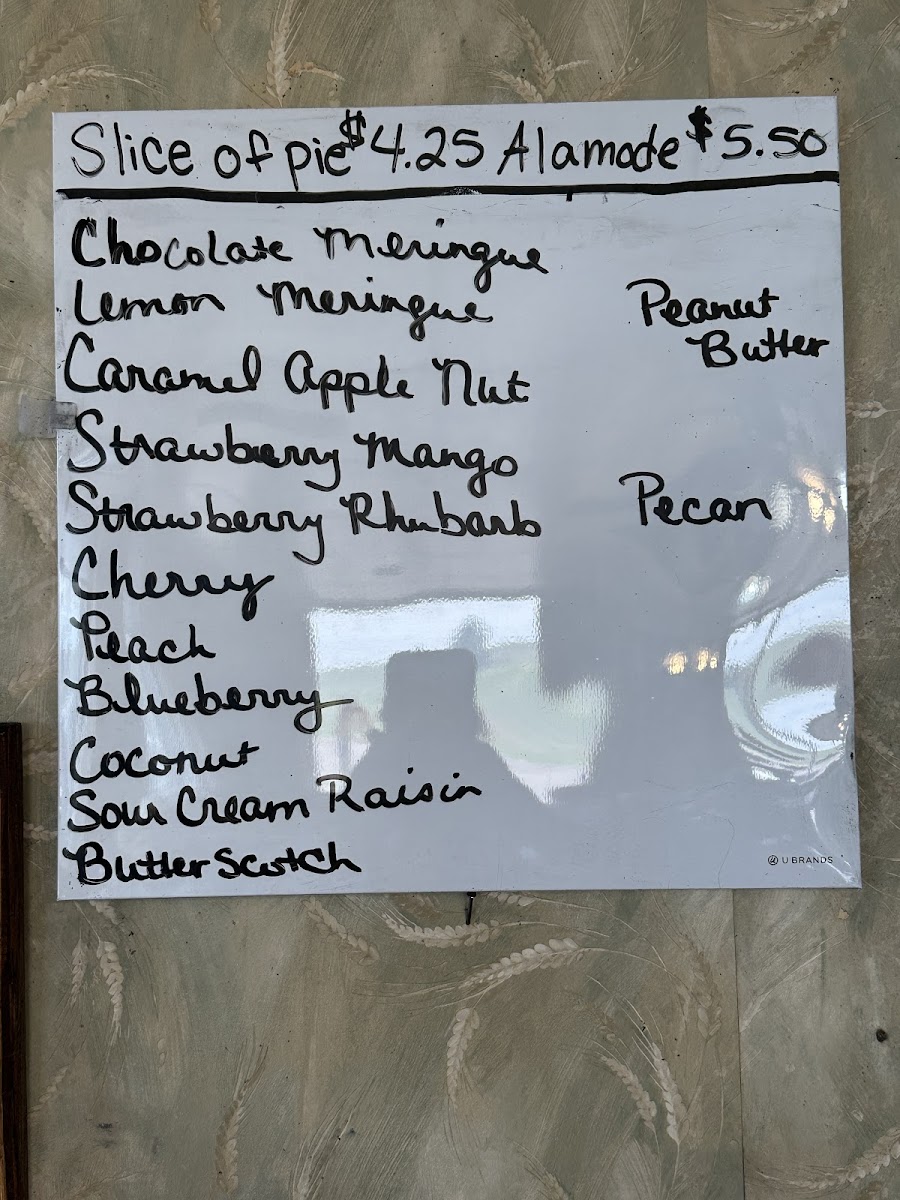 Slice of pie $4.25 Alamode $5.50
Chocolate Meringue
Lemon Meringue
Caramel Apple Nut
Strawberry Mango
Strawberry Rhubarb
Cherry
Peach
Blueberry
Coconut
Sour Cream Raisin
Butter Scotch
Peanut
Butter
Pecan
U BRANDS